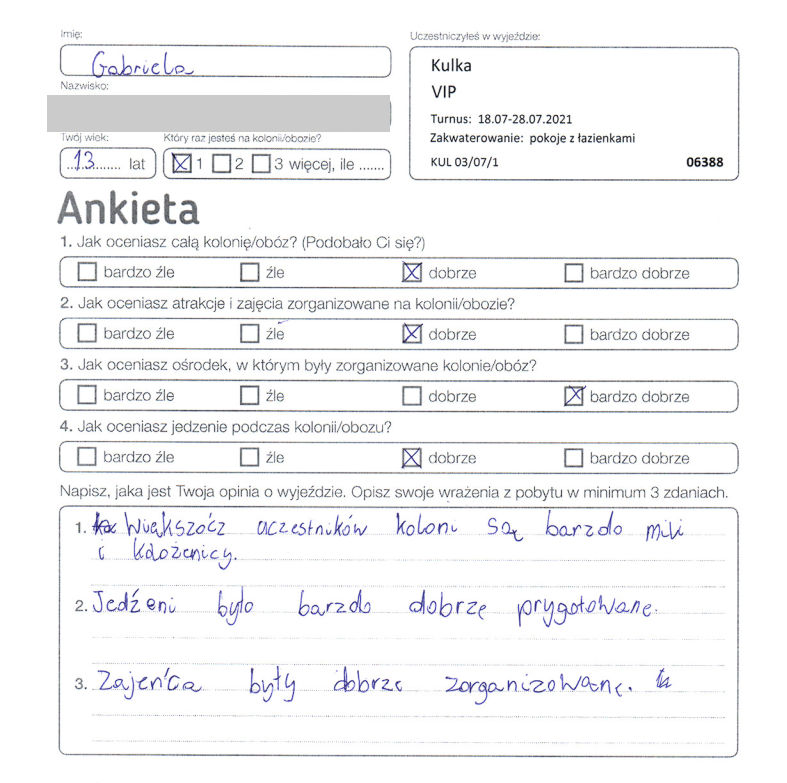 Imię:
Gabriela
Uczestniczyłeś w wyjeździe:
Kulka
VIP
Turnus: 18.07-28.07.2021
Zakwaterowanie: pokoje z łazienkami
KUL 03/07/1 06388
Nazwisko:
Twój wiek:
..13....... lat
Który raz jesteś na kolonii/obozie?
1 2 3 więcej, ile .......
Ankieta
1. Jak oceniasz całą kolonię/obóz? (Podobało Ci się?)
bardzo źle źle dobrze bardzo dobrze
2. Jak oceniasz atrakcje i zajęcia zorganizowane na kolonii/obozie?
bardzo źle źle dobrze bardzo dobrze
3. Jak oceniasz ośrodek, w którym były zorganizowane kolonie/obóz?
bardzo źle źle dobrze bardzo dobrze
4. Jak oceniasz jedzenie podczas kolonii/obozu?
bardzo źle źle dobrze bardzo dobrze
Napisz, jaka jest Twoja opinia o wyjeździe. Opisz swoje wrażenia z pobytu w minimum 3 zdaniach.
1. Większość uczestników koloni są barzdo mili
i
2. Jedźeni było barzdo dobrzę prygotowane.
3. Zajeńca były dobrze zorganizowane.